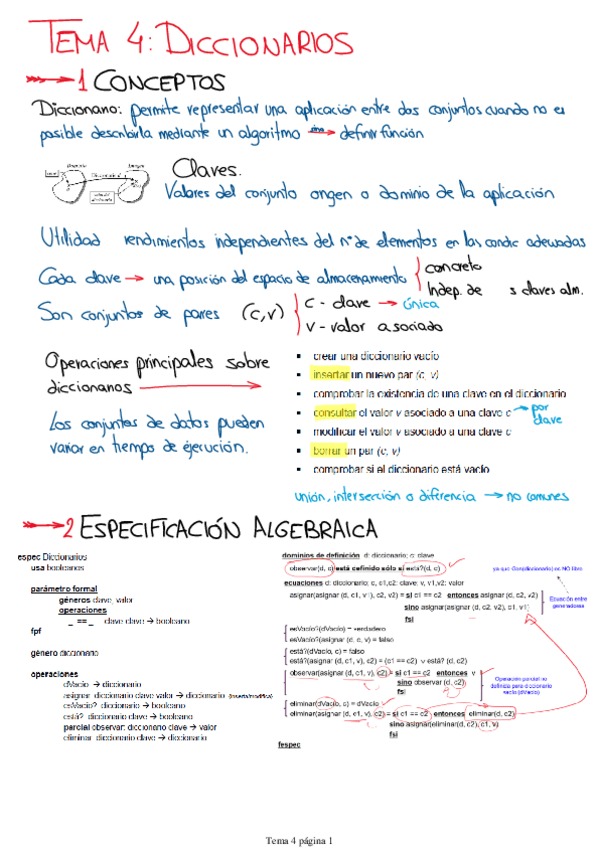 TEMA 4: DICCIONARIOS
1 CONCEPTOS
Diccionario: permite representar una aplicación entre dos conjuntos cuando no es
posible describirla mediante un algoritmo sino definir función
Claves.
Valores del conjunto origen o dominio de la aplicación
Utilidad rendimientos independientes del nº de elementos en las condic adecuadas
Cada clave → una posición del espacio de almacenamiento
concreto
Indep. de s claves alm.
Son conjuntos de pares (c,v)
c - clave → única
v - valor asociado
Operaciones principales sobre
diccionarios
Los conjuntos de datos pueden
variar en tiempo de ejecución.
▪ crear una diccionario vacío
▪ insertar un nuevo par (c, v)
▪ comprobar la existencia de una clave en el diccionario
▪ consultar el valor v asociado a una clave c → por clave
▪ modificar el valor v asociado a una clave c
▪ borrar un par (c, v)
▪ comprobar si el diccionario está vacío
unión, intersección o diferencia → no comunes
2 ESPECIFICACIÓN ALGEBRAICA
espec Diccionarios
usa booleanos
parámetro formal
géneros clave, valor
operaciones
_ == _ clave clave → booleano
fpf
género diccionario
operaciones
dVacío → diccionario
asignar diccionario clave valor → diccionario (inserta/modifica)
esVacío? diccionario → booleano
está? diccionario clave → booleano
parcial observar: diccionario clave → valor
eliminar diccionario clave → diccionario
dominios de definición d: diccionario; c: clave
observar(d, c) está definido sólo si está?(d, c)
ecuaciones d: diccionario; c, c1,c2: clave; v, v1,v2: valor
asignar(asignar(d, c1, v1), c2, v2) = si c1 == c2 entonces asignar(d, c2, v2)
sino asignar(asignar (d, c2, v2), c1, v1)
fsi
Ecuación entre
generadoras
esVacío?(dVacío) = verdadero
esVacío?(asignar (d, c, v) = falso
está?(dVacío, c) = falso
está?(asignar (d, c1, v), c2) = (c1 == c2) v está? (d, c2)
observar(asignar (d, c1, v), c2) = si c1 == c2 entonces v
sino observar (d, c2)
fsi
Operación parcial no
definida para diccionario
vacío (dVacío)
eliminar(dVacío, c) = dVacío
eliminar(asignar (d, c1, v), c2) = si c1 == c2 entonces eliminar(d, c2)
sino asignar(eliminar(d, c2), c1, v)
fsi
fespec
Tema 4 página 1